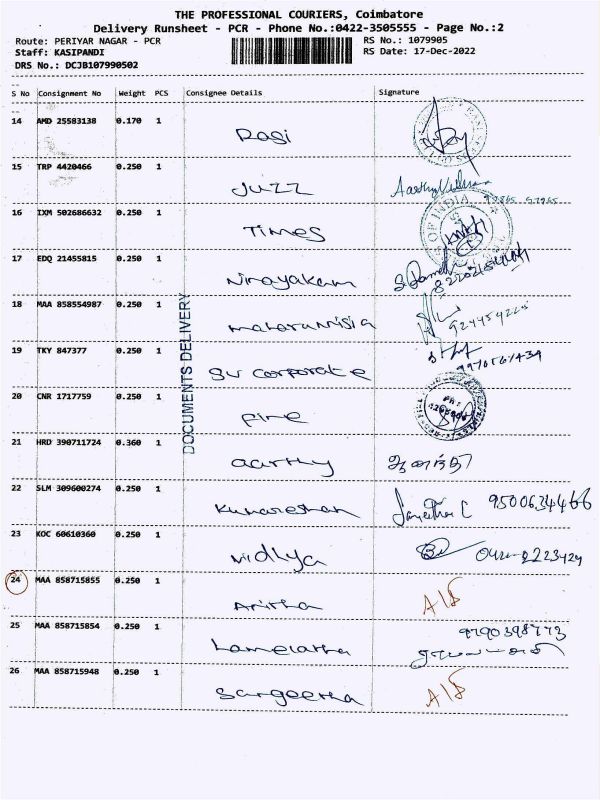 THE PROFESSIONAL COURIERS, Coimbatore
Delivery Runsheet - PCR - Phone No.:0422-3505555 - Page No.:2
Route: PERIYAR NAGAR - PCR
RS No.: 1079905
Staff: KASIPANDI
RS Date: 17-Dec-2022
DRS No.: DCJB107990502
S No Consignment No Weight PCS Consignee Details Signature
14 AMD 25583138 0.170 1 Rasi
15 TRP 4420466 0.250 1 Juzz
16 IXM 502686632 0.250 1 Times
17 EDQ 21455815 0.250 1
18 MAA 858554987 0.250 1
19 TKY 847377 0.250 1 corporate
20 CNR 1717759 0.250 1 Fire
21 HRD 390711724 0.360 1 aarthy ஆனந்தி
22 SLM 309600274 0.250 1 9500634466
23 KOC 60610360 0.250 1 Vidhya
24 MAA 858715855 0.250 1 A/S
25 MAA 858715854 0.250 1
26 MAA 858715948 0.250 1 Sangeetha A/S
DOCUMENTS DELIVERY